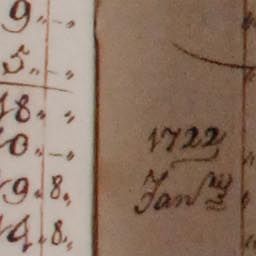 9.. - ..
5.. - ..
18. ..
10.. - ..
19. 8.
14. 8.
1722
Jan^ry